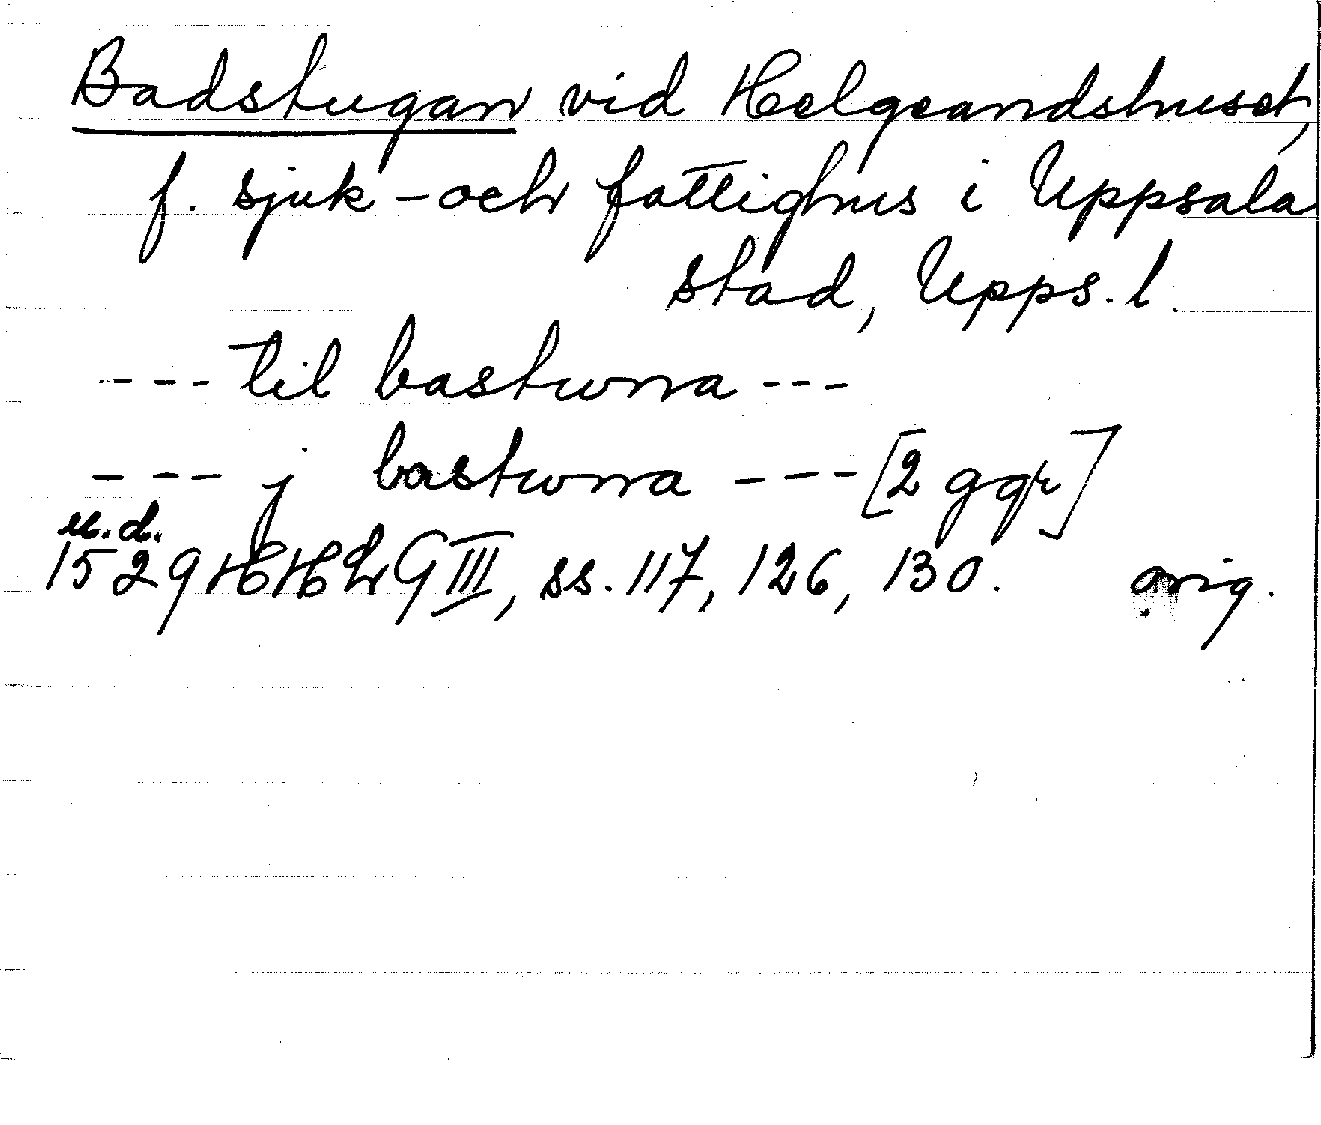 Badstugan vid Helgeandshuset,
f. sjuk- och fattighus i Uppsala
stad, Upps. l.
--- til bastwna ---
--- j bastwna --- [2 ggr]
u.d.
1529 HH hr G III, ss. 117, 126, 130. orig.